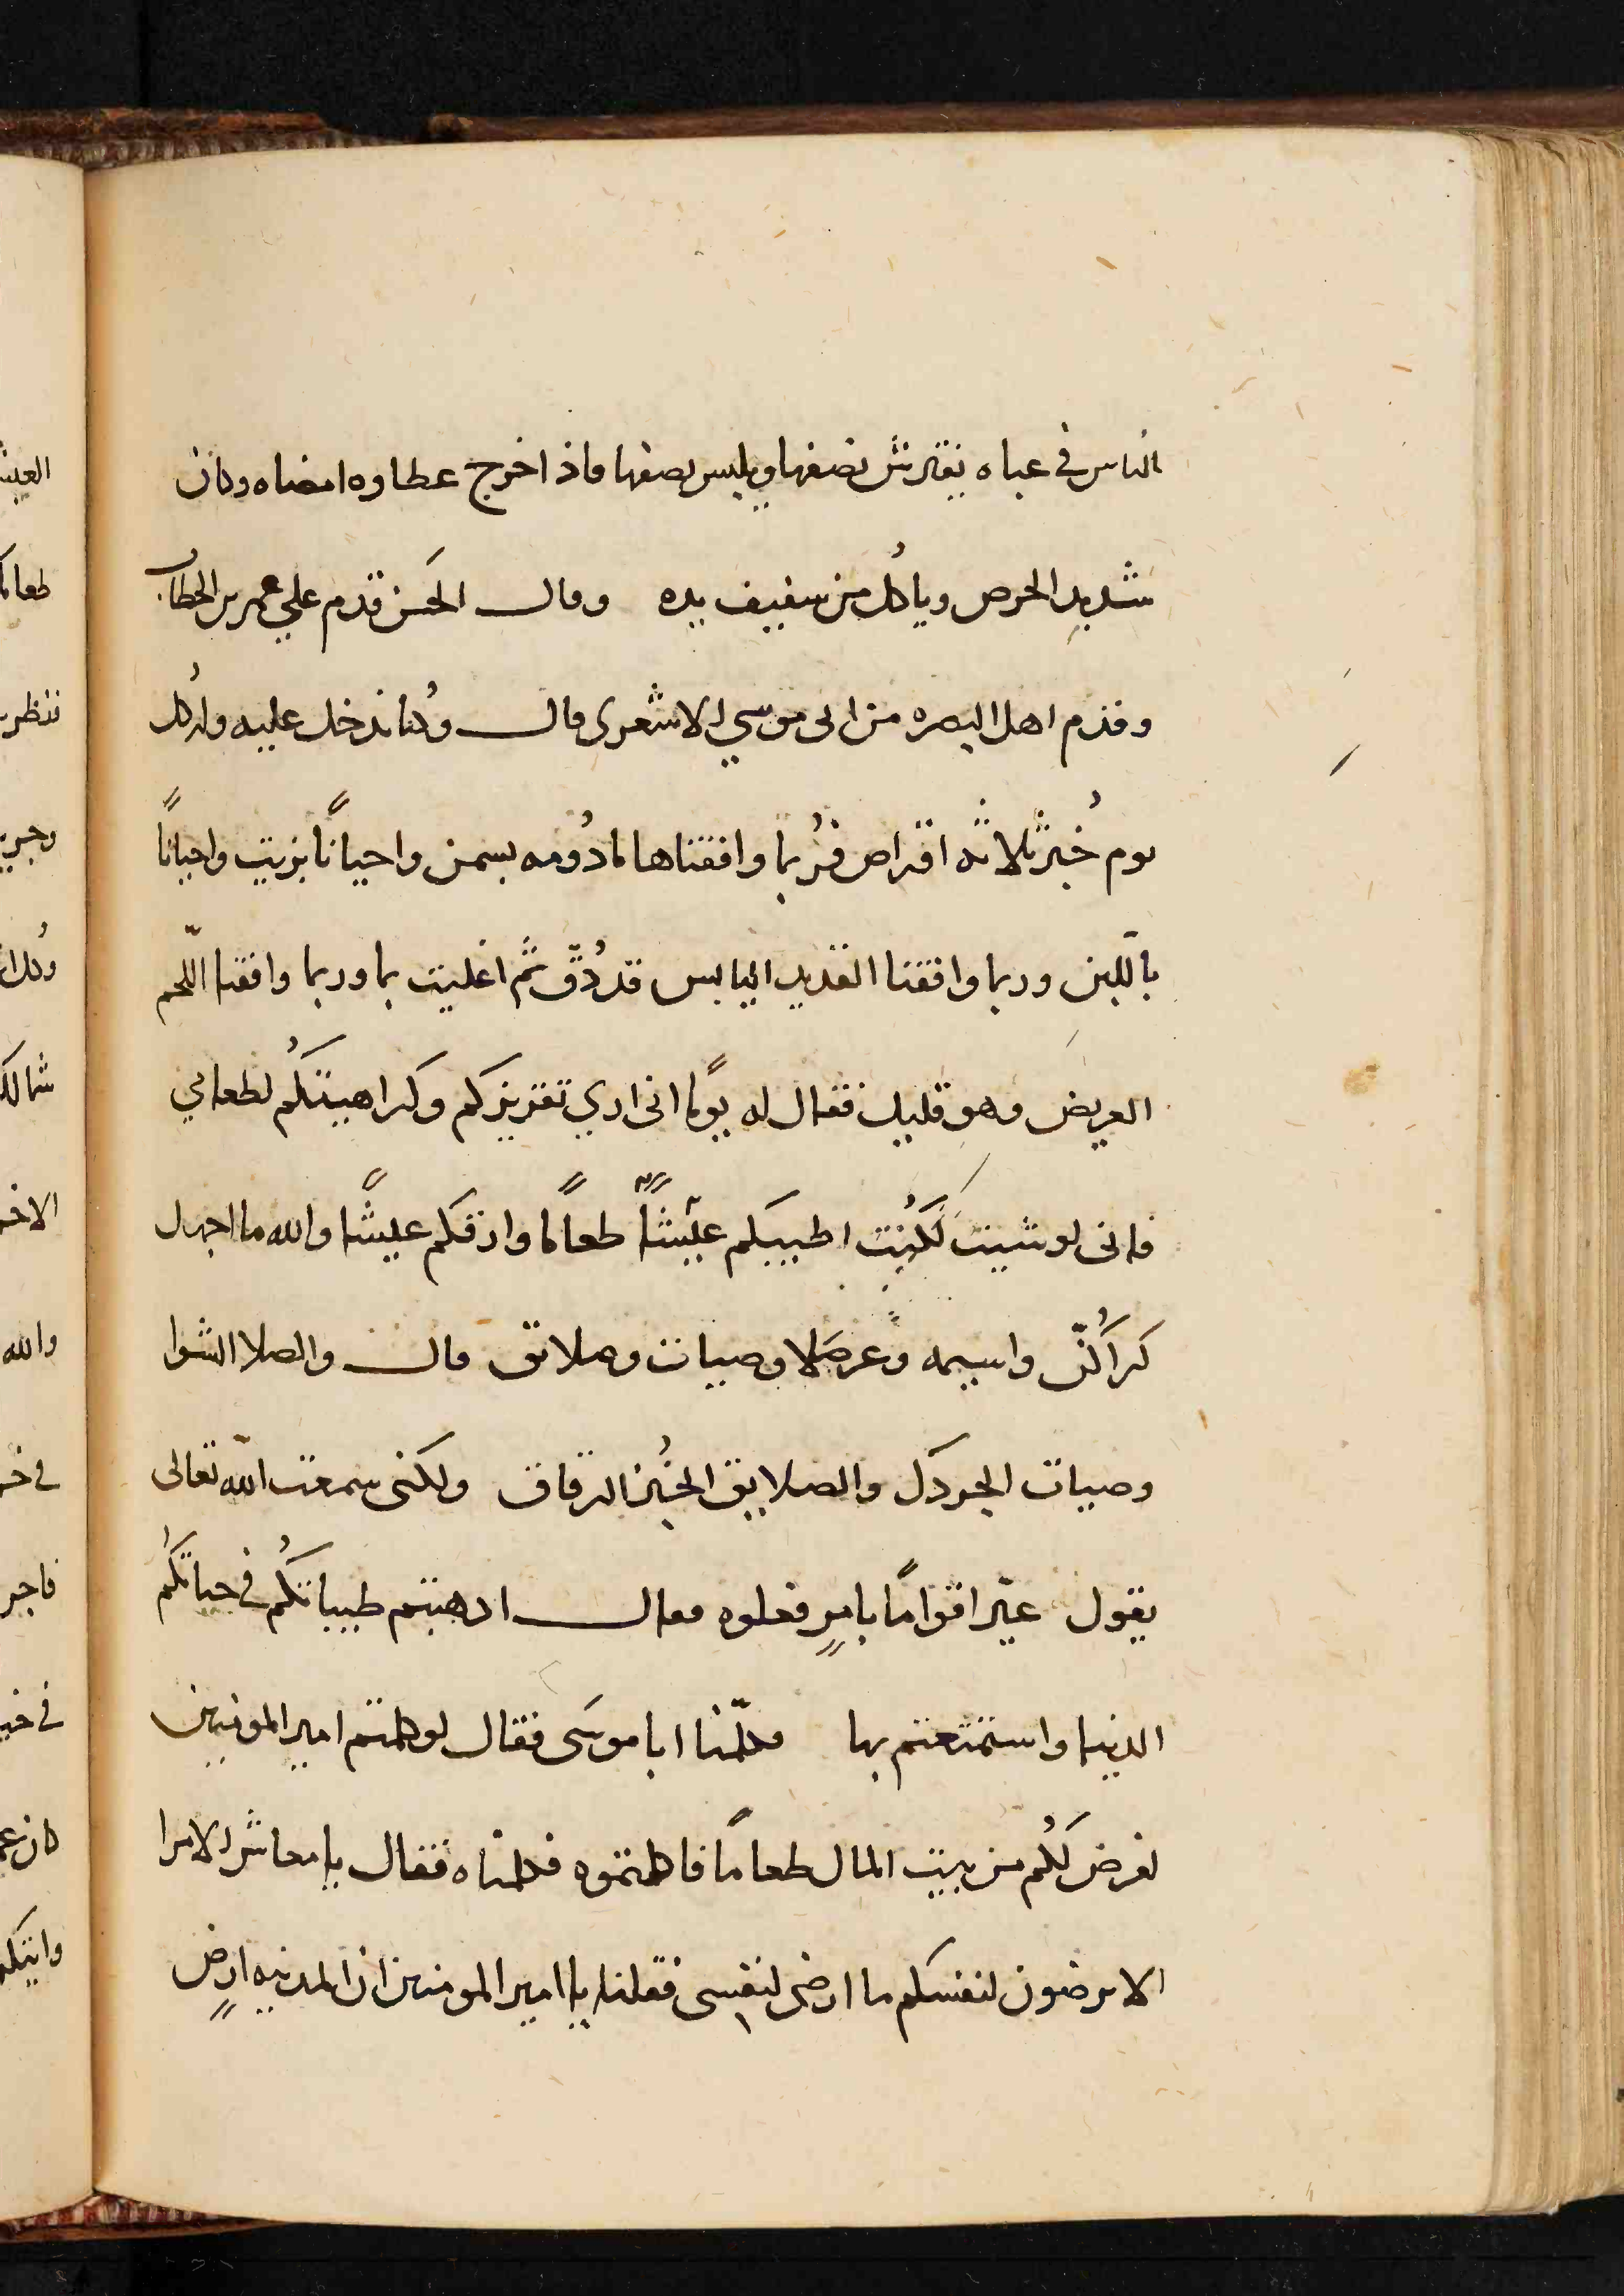 الناس في عباه يفترش نصفها ويلبس نصفها فاذ اخرج عطاوه امضاه وكان
شديد الحرص وياكُل من سفيف يده وقال الحَسن قدم علي عمر بن الخطاب
وفدم اهل البصره من ابي موسي الاشعري قال وكُنا ندخل عليه وله كُل
يوم خُبز ثلاثه اقراص فرُبما وافقناها مادُومه بسمن واحيانًا بزيت واحيانًا
باللّبن وربما وافقنا القديد اليابس قد دُقّ ثم اغليت بما وربما وافقنا اللّحم
العريض وهو قليل فقال له يومًا اني اري تقزيزكم وكراهيتكُم لطعامي
فاني لو شيت لكُنت اطيبكم عيشًا طعامًا وارقكم عيشًا والله ما اجهل
كراكُرّ واسيمه وعن صَلا وصيبات وصلائق قال والصلا الشوا
وصيبات الجردَل والصلايق الخُبز الرقاق ولكني سمعت الله تعالى
يقول عيّر اقوامًا بامرٍ فعلوه فقال اذهبتم طيباتكُم في حياتكُم
الدنيا واستمتعتم بها فكلّمنا ابا موسَى فقال لو كلمتم امير المومنين
نفرض لكُم من بيت المال طعامًا فاكلمتموه فكلمناه فقال يا معاشر الامرا
الا ترضون لنفسكم ما ارضى لنفسى فقلنا يا امير المومنين ان المدينه ارضٍ